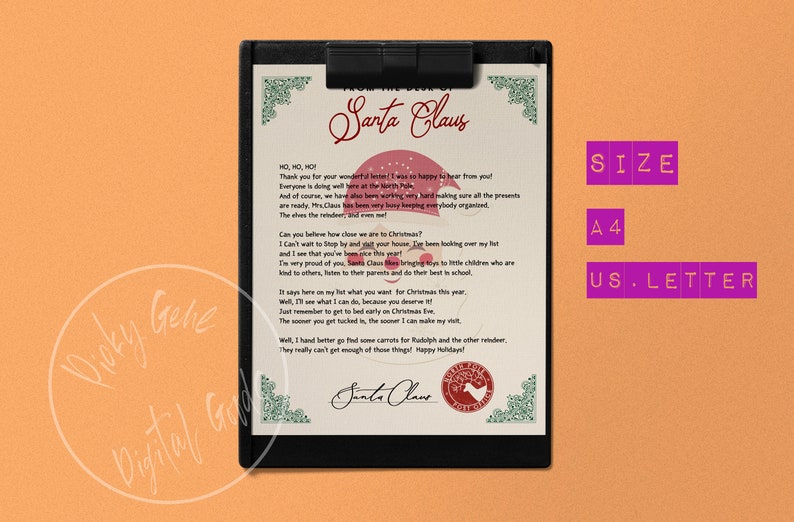 FROM THE DESK OF
Santa Claus
HO, HO, HO!
Thank you for your wonderful letter! I was so happy to hear from you!
Everyone is doing well here at the North Pole,
And of course, we have also been working very hard making sure all the presents
are ready, Mrs,Claus has been very busy keeping everybody organized,
The elves the reindeer, and even me!
Can you believe how close we are to Christmas?
I Can't wait to Stop by and visit your house. I've been looking over my list
and I see that you've been nice this year!
I'm very proud of you, Santa Claus likes bringing toys to little children who are
kind to others, listen to their parents and do their best in school.
It says here on my list what you want for Christmas this year,
Well, I'll see what I can do, because you deserve it!
Just remember to get to bed early on Christmas Eve,
The sooner you get tucked in, the sooner I can make my visit,
Well, I hand better go find some carrots for Rudolph and the other reindeer,
They really can't get enough of those things! Happy Holidays!
Santa Claus
NORTH POLE
POST OFFICE
SIZE
A4
US.LETTER
Digital Good